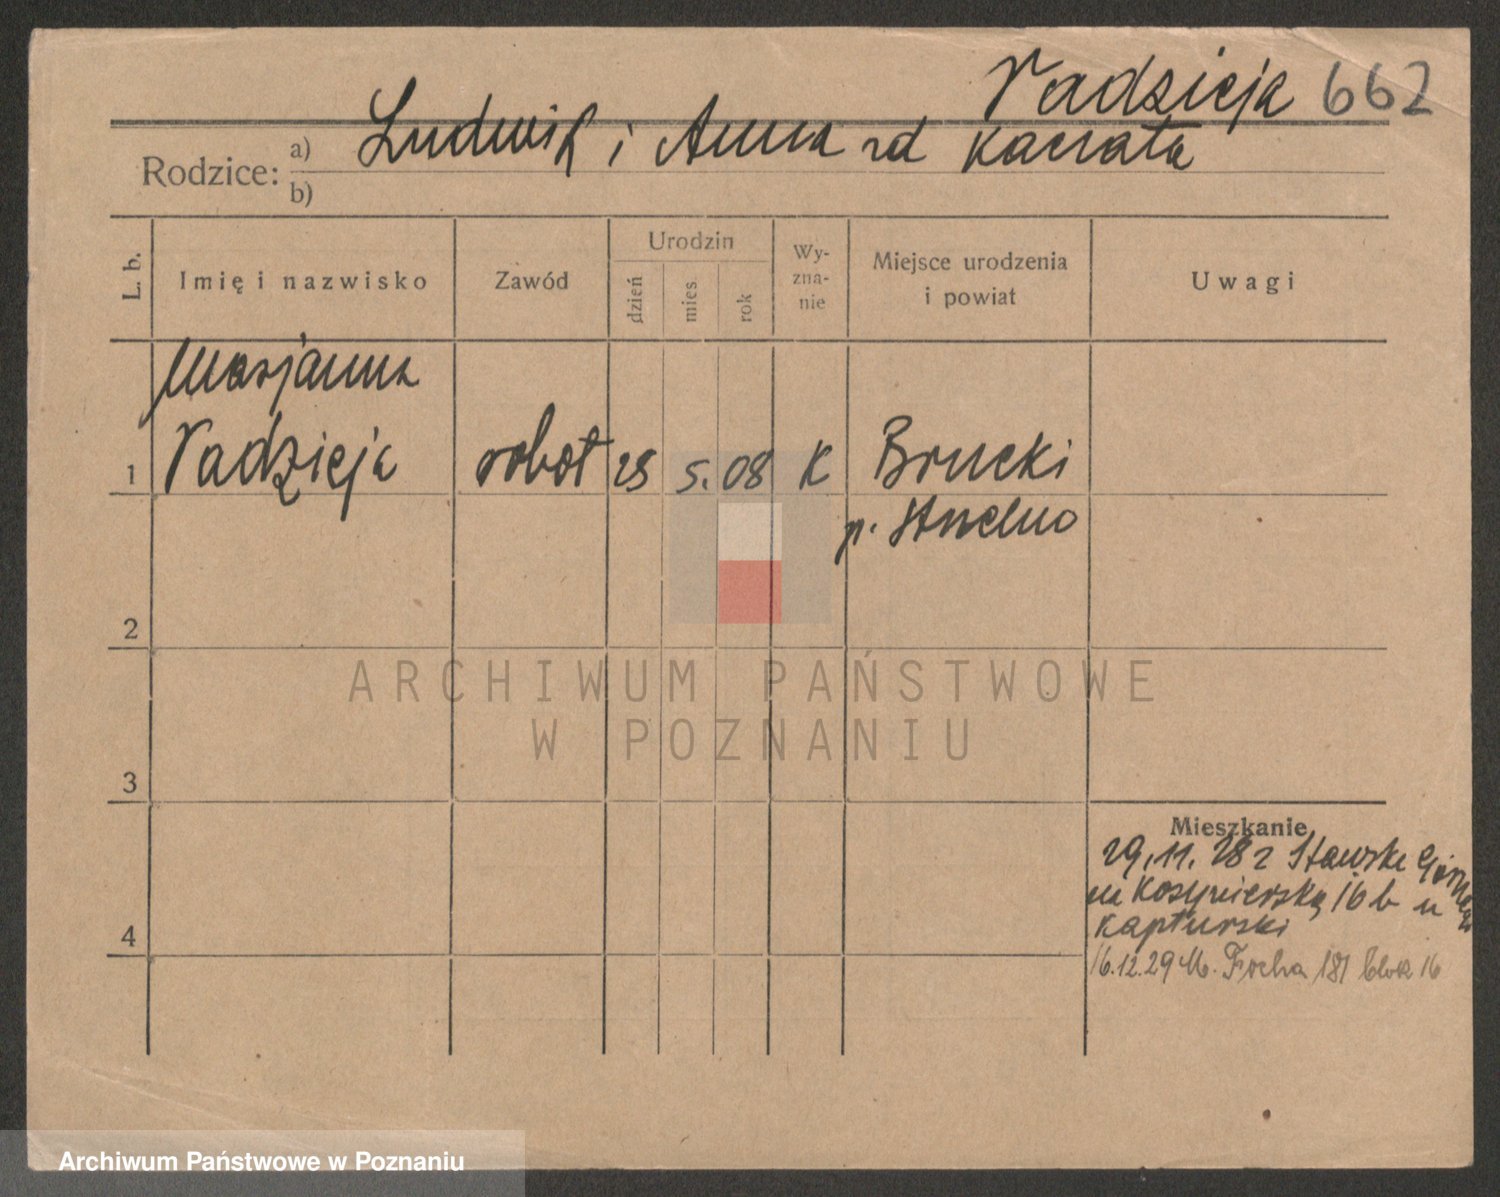 Radzieja 662
Rodzice: a) Ludwik i Anna zd Kaczała
b)
L. b. Imię i nazwisko Zawód Urodzin dzień mies. rok Wy-zna-nie Miejsce urodzenia i powiat Uwagi
Marjanna
1 Radzieja robot 25 5. 08 K Brucki
p. Strzelno
2
ARCHIWUM PAŃSTWOWE
W POZNANIU
3
Mieszkanie
29.11.28 z
na 16 b u
Kapturski
4
16.12.29 M. Focha 181 blok 16
Archiwum Państwowe w Poznaniu